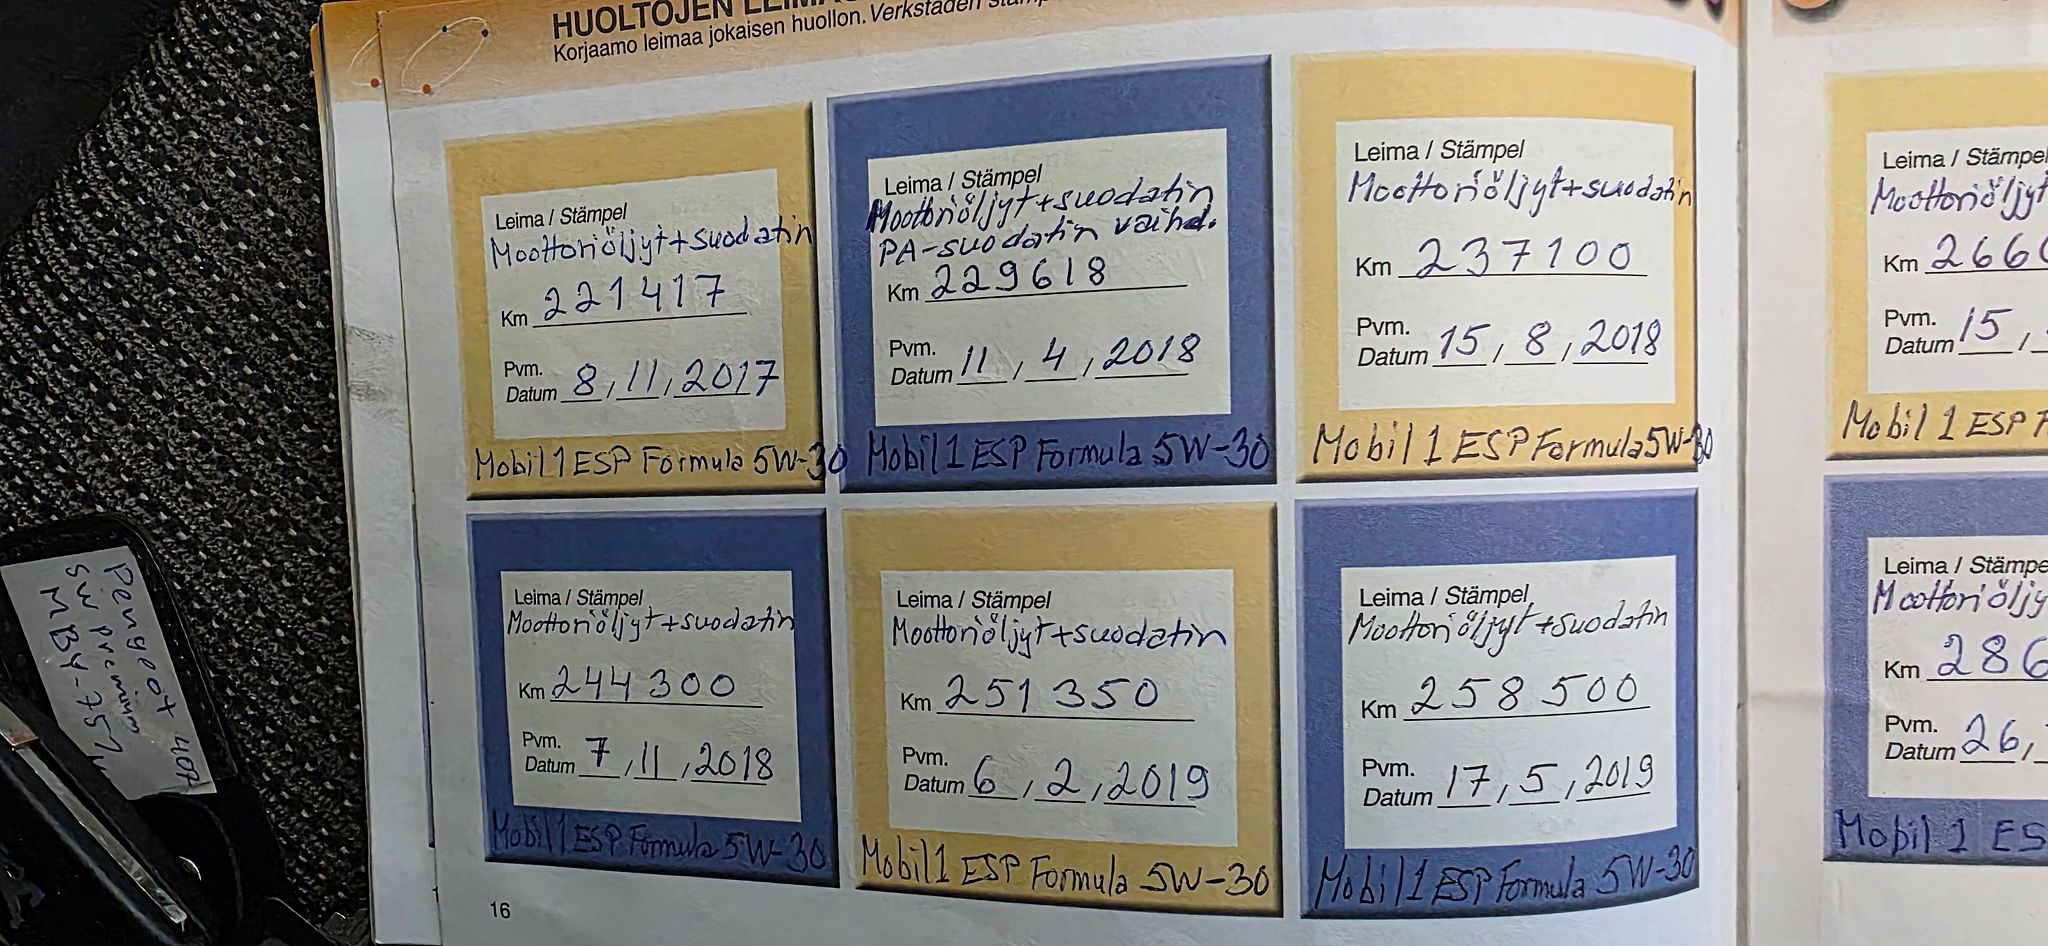 HUOLTOJEN
Korjaamo leimaa jokaisen huollon. Verkstaden
Leima / Stämpel
Moottoriöljyt+suodatin
Km 221417
Pvm.
Datum 8, 11, 2017
Mobil 1 ESP Formula 5W-30
Leima / Stämpel
Moottoriöljyt+suodatin
PA-suodatin vaihd.
Km 229618
Pvm.
Datum 11, 4, 2018
Mobil 1 ESP Formula 5W-30
Leima / Stämpel
Moottoriöljyt+suodatin
Km 237100
Pvm.
Datum 15, 8, 2018
Mobil 1 ESP Formula 5W-30
Leima / Stämpel
Moottoriöljyt+suodatin
Km 244300
Pvm.
Datum 7, 11, 2018
Mobil 1 ESP Formula 5W-30
Leima / Stämpel
Moottoriöljyt+suodatin
Km 251350
Pvm.
Datum 6, 2, 2019
Mobil 1 ESP Formula 5W-30
Leima / Stämpel
Moottoriöljyt+suodatin
Km 258500
Pvm.
Datum 17, 5, 2019
Mobil 1 ESP Formula 5W-30
16
Leima / Stämpel
Moottoriöljyt
Km 266
Pvm.
Datum 15,
Mobil 1 ESP F
Leima / Stämpe
Moottoriöljy
Km 286
Pvm.
Datum 26,
Mobil 1 ES
Peugeot 407
SW premium